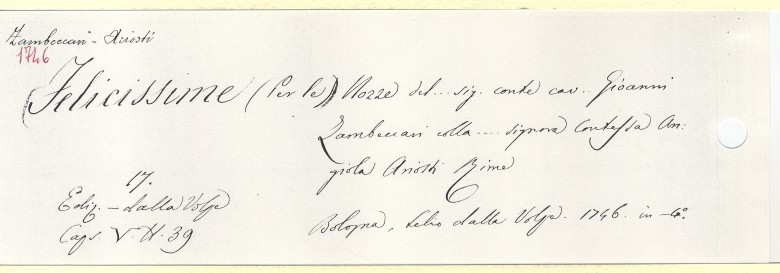 Zambeccari - Ariosti
1746
Felicissime (Per le) Nozze del... sig. conte cav.. Gioanni
Zambeccari colla.... signora Contessa An:
giola Ariosti Rime
17.
Ediz. - dalla Volpe
Caps. V. H. 39
Bologna, Lelio dalla Volpe. 1746. in-4º.